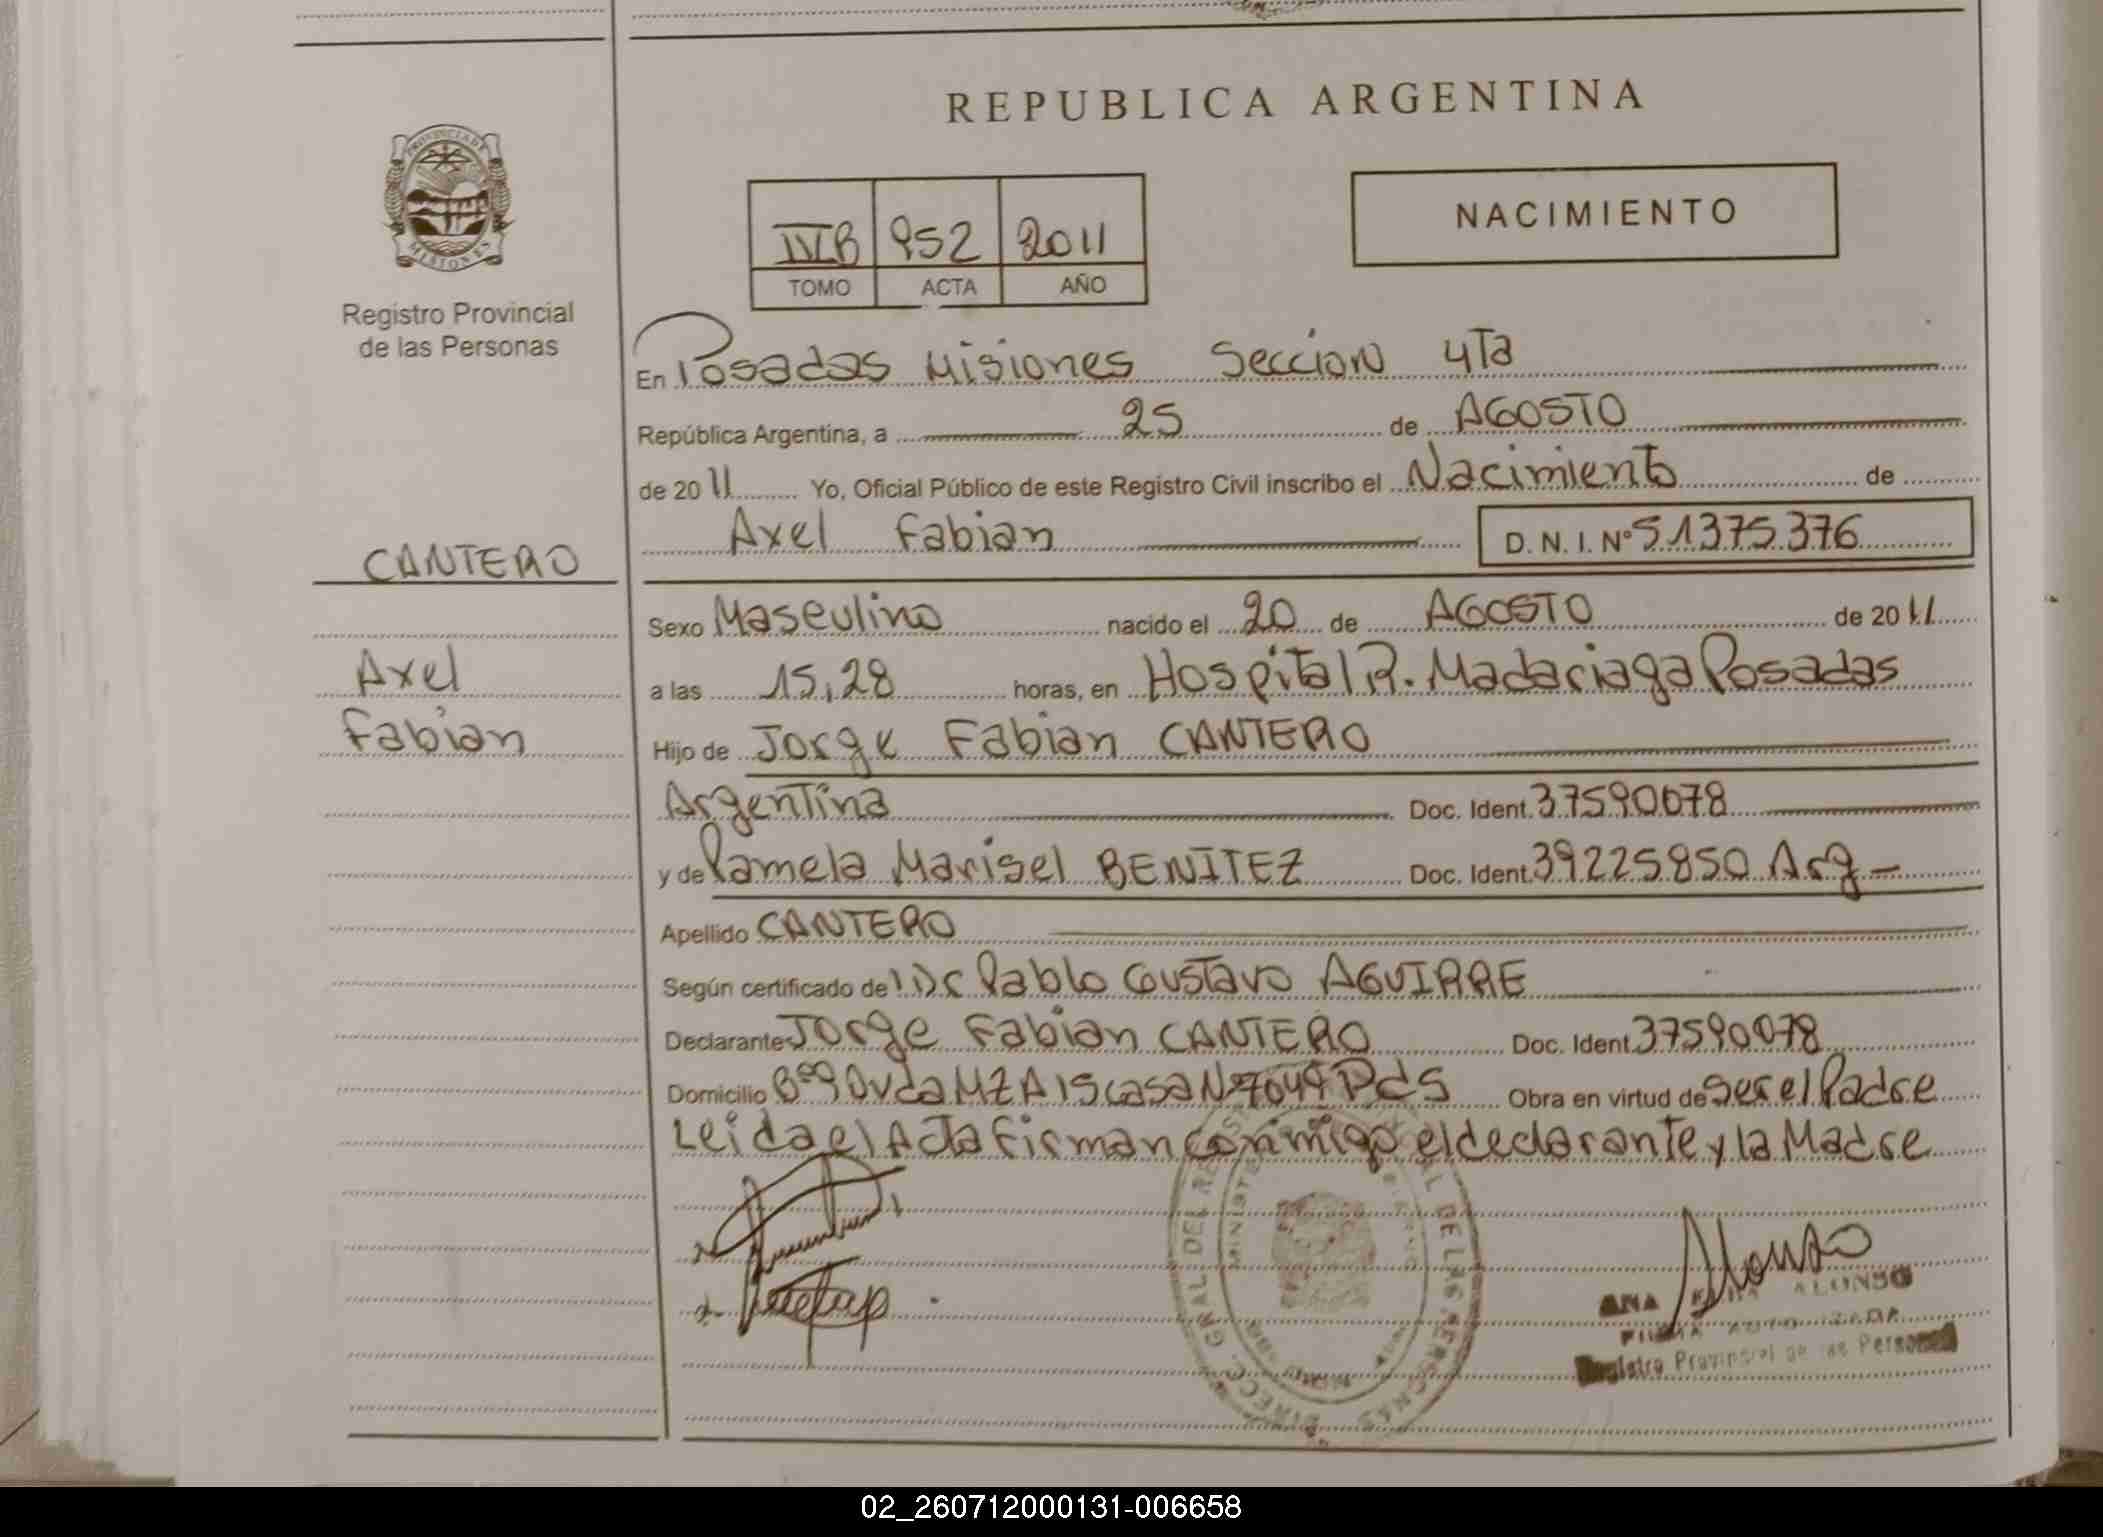 REPUBLICA ARGENTINA
PROVINCIA DE
MISIONES
Registro Provincial
de las Personas
IVB 952 2011
TOMO ACTA AÑO
NACIMIENTO
En Posadas Misiones Seccion 4Ta
República Argentina, a 25 de AGOSTO
de 2011 Yo, Oficial Público de este Registro Civil inscribo el Nacimiento de
Axel Fabian D. N. I. Nº 51375376
CANTERO
Axel
Fabian
Sexo Masculino nacido el 20 de AGOSTO de 2011
a las 15,28 horas, en Hospital R. Madariaga Posadas
Hijo de Jorge Fabian CANTERO
Argentina Doc. Ident. 37590078
y de Pamela Marisel BENITEZ Doc. Ident. 39225850 Arg
Apellido CANTERO
Según certificado de Dr Pablo Gustavo AGUIRRE
Declarante Jorge Fabian CANTERO Doc. Ident 37590078
Domicilio MZA 15 casa Nº 7049 Pds Obra en virtud de ser el Padre
Leida el Acta firman conmigo el declarante y la Madre
Alonso
ANA ALONSO
Registro Provincial de las Personas
02_260712000131-006658